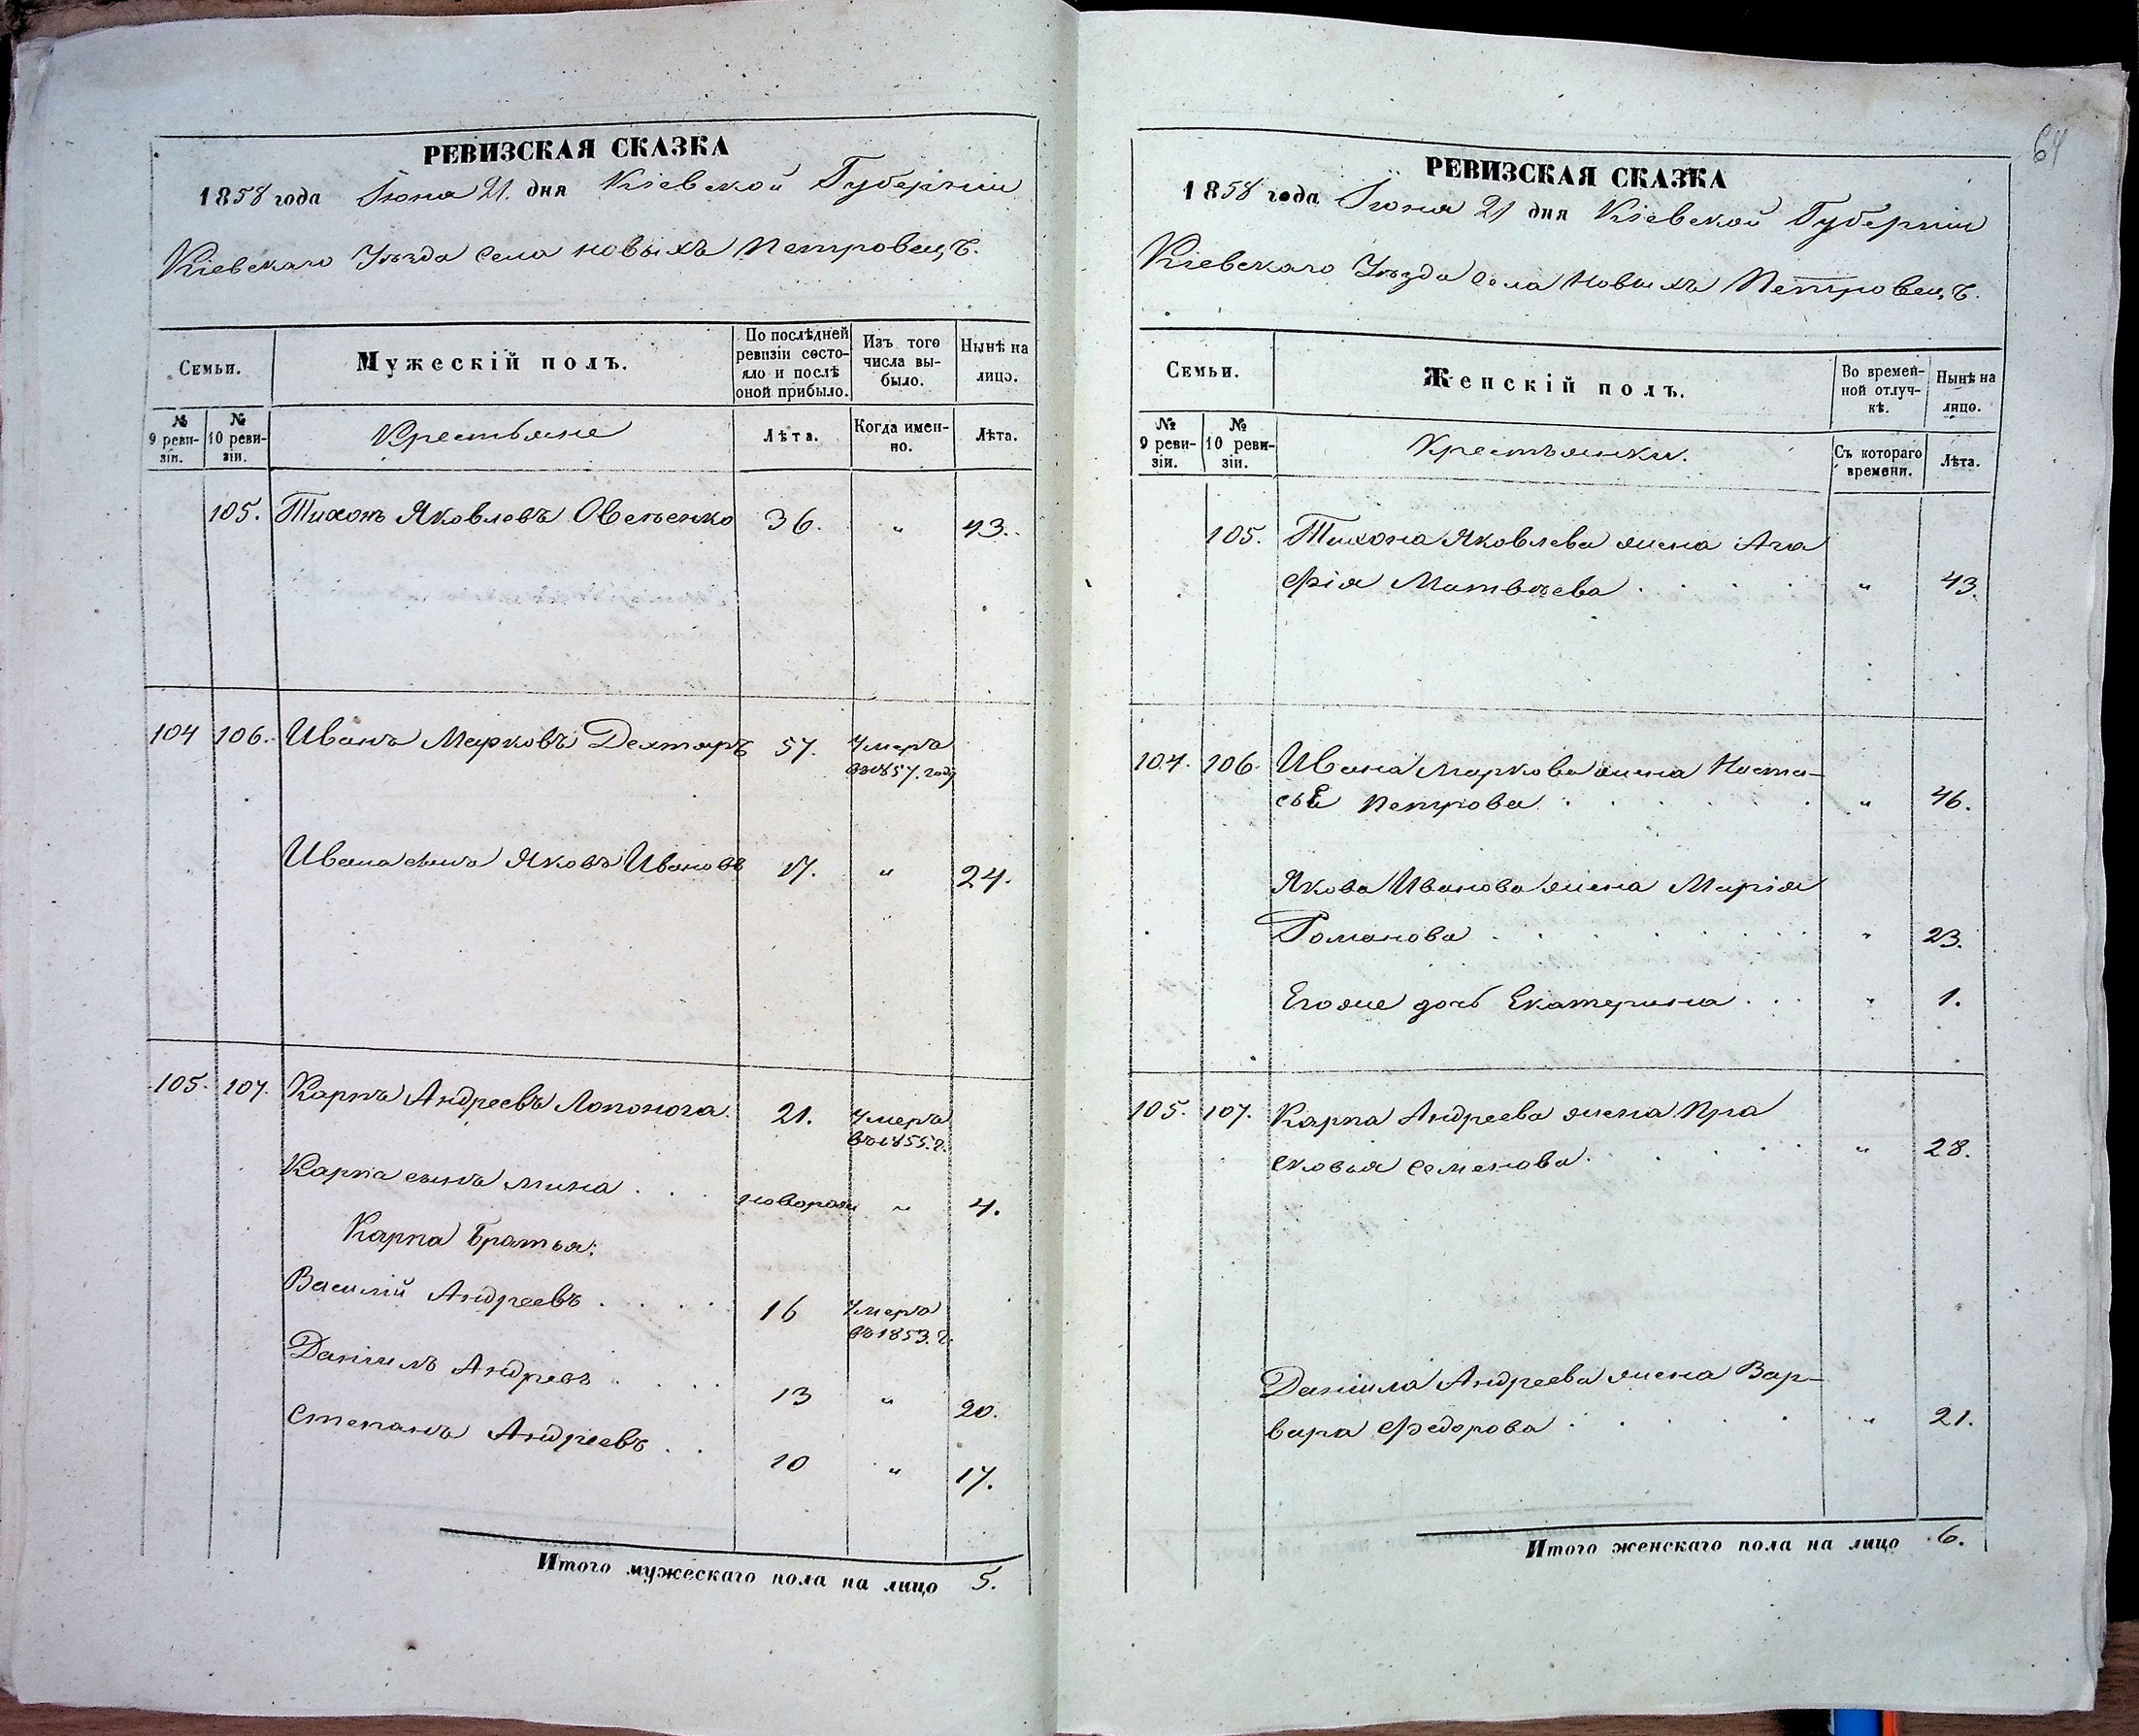 64
РЕВИЗСКАЯ СКАЗКА
1858 года Іюня 21. дня Кіевской Губерніи
Кіевскаго Уѣзда Села Новыхъ Петровецъ.
Семьи.
Мужескій полъ.
По послѣдней ревизіи состояло и послѣ оной прибыло.
Изъ того числа выбыло.
Нынѣ на лицо.
№ 9 ревизіи.
№ 10 ревизіи.
Крестьяне
Лѣта.
Когда именно.
Лѣта.
105. Тихонъ Яковлевъ 36. " 43.
104 106. Иванъ Марковъ Дехтяръ 57. Умеръ
въ 1857. году
Ивана сынъ Яковъ Ивановъ 17. " 24.
105. 107. Карпъ Андреевъ Лопонога. 21. Умеръ
въ 1855. г.
Карпа сынъ Мина . . . новорож " 4.
Карпа Братья:
Василій Андреевъ . . . . 16 Умеръ
въ 1853. г.
Даніилъ Андреевъ . . . . 13 " 20.
Степанъ Андреевъ . . 10 " 17.
Итого мужескаго пола на лицо 5.
РЕВИЗСКАЯ СКАЗКА
1858 года Іюня 21 дня Кіевской Губерніи
Кіевскаго Уѣзда Села Новыхъ Петровецъ.
Семьи.
Женскій полъ.
Во временной отлучкѣ.
Нынѣ на лицо.
№ 9 ревизіи.
№ 10 ревизіи.
Крестьянки.
Съ котораго времени.
Лѣта.
105. Тихона Яковлева жена Ага
фія Матвѣева . . . . " 43.
104. 106. Ивана Маркова жена Наста-
сья Петрова . . . . . " 46.
Якова Иванова жена Марія
Романова . . . . . . " 23.
Егоже дочь Екатерина . . . " 1.
105. 107. Карпа Андреева жена Пра
сковья Семенова . . . . " 28.
Даніила Андреева жена Вар-
вара Федорова . . . . . " 21.
Итого женскаго пола на лицо 6.